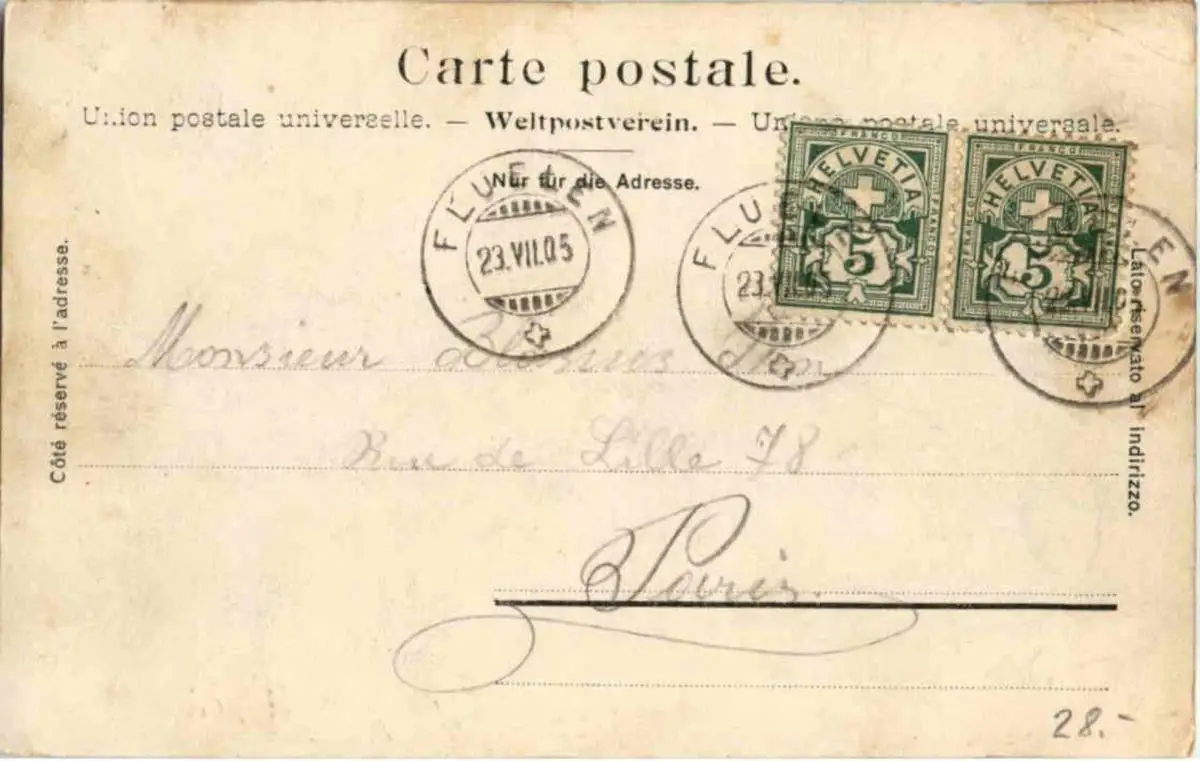 Carte postale.
Union postale universelle. — Weltpostverein. — Unione postale universale.
Nur für die Adresse.
FRANCO
HELVETIA
FRANCO
FRANCO
5
FRANCO
HELVETIA
FRANCO
FRANCO
5
FLUELEN
23.VII.05
FLUELEN
23.VII.05
FLUELEN
Côté réservé à l'adresse.
Lato riservato al indirizzo.
Monsieur
Rue de Lille 78
Paris.
28.-